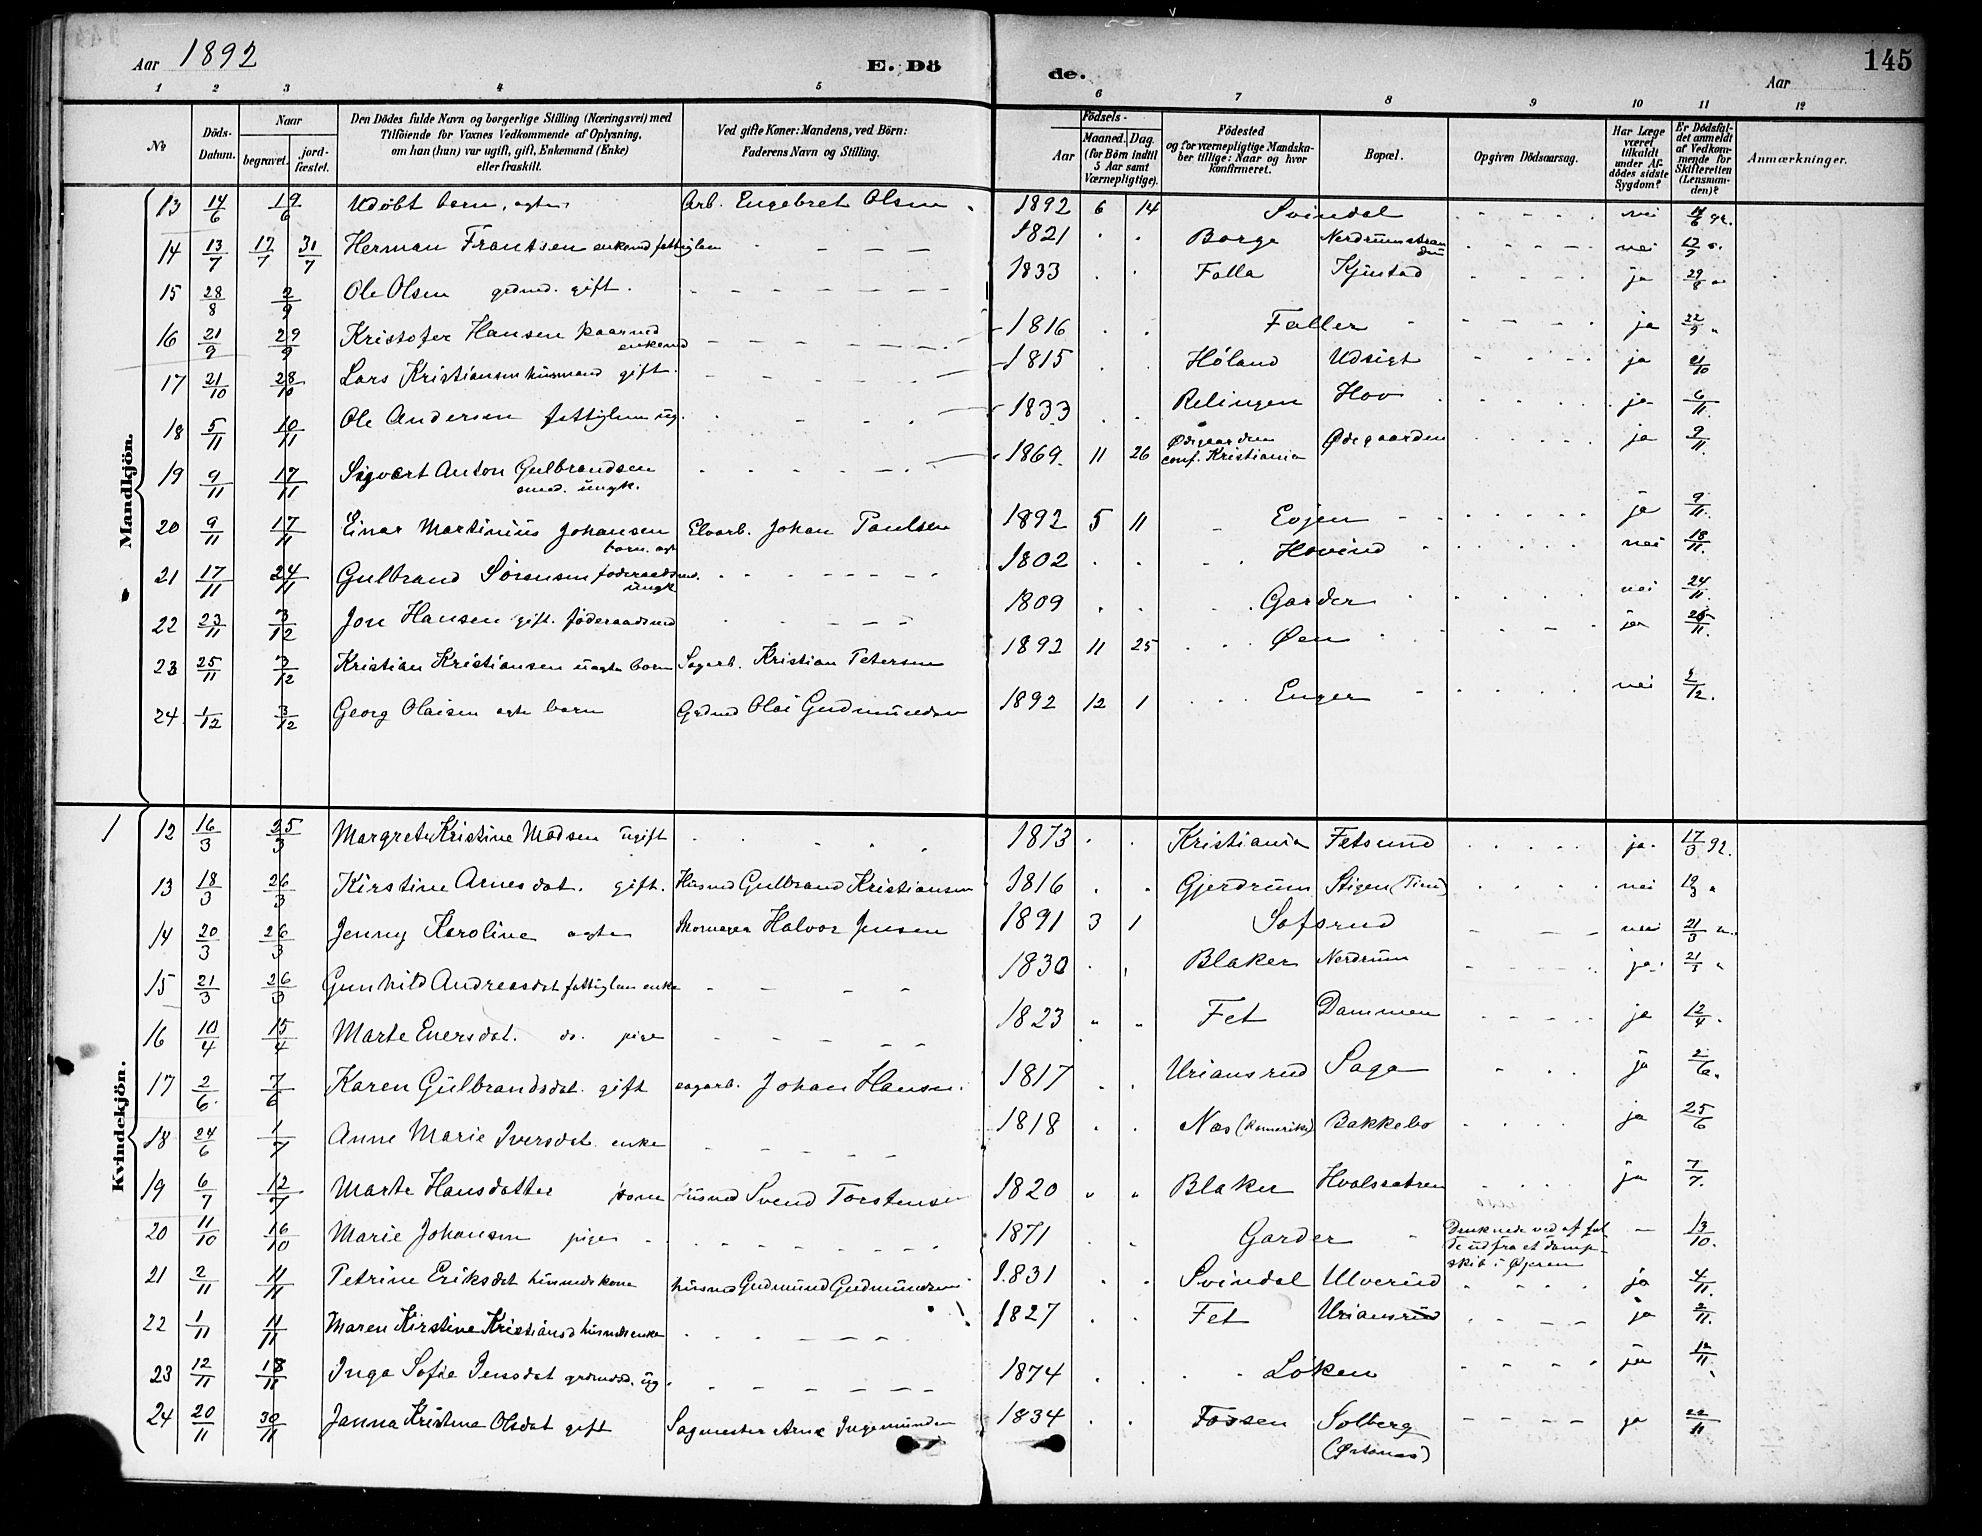 Aar 1892
E. Dö
de.
Aar
145
1 2 3 4 5 6 7 8 9 10 11 12
No
Döds-Datum.
Naar
begravet.
jord-fæstet.
Den Dödes fulde Navn og borgerlige Stilling (Næringsvei) med
Tilföiende for Voxnes Vedkommende af Oplysning,
om han (hun) var ugift, gift, Enkemand (Enke)
eller fraskilt.
Ved gifte Koner: Mandens, ved Börn:
Faderens Navn og Stilling.
Födsels-
Aar
Maaned. Dag.
(for Börn indtil
5 Aar samt
Værnepligtige).
Födested
og for værnepligtige Mandska-
ber tillige: Naar og hvor
konfirmeret.
Bopæl.
Opgiven Dödsaarsag.
Har Læge
været
tilkaldt
under Af-
dödes sidste
Sygdom?
Er Dödsfal-
det anmeldt
af Vedkom-
mende for
Skifteretten
(Lensman-
den)?
Anmærkninger.
Mandkjön.
13 14/6 19/6 Udöbt barn, ægte Arb. Engebret Olsen 1892 6 14 Svindal nei 92.
14 13/7 17/7 31/7 Herman Frantsen enkemd fattiglem 1821 Borge Nerdrumstranden nei
15 28/8 2/9 Ole Olsen grdmd. gift. 1833 Falla Kjustad ja 29/8
16 21/9 29/9 Kristofer Hansen kaarmd enkemd 1816 Faller ja 22/9
17 21/10 28/10 Lars Kristiansen husmand gift. 1815 Höland Udsigt ja 21/10
18 5/11 10/11 Ole Andersen fattiglem ug. 1833 Relingen Hov ja 6/11
19 9/11 17/11 Sigvart Anton Gulbrandsen smed. ungk. 1869 11 26 Ödegaarden conf. Kristiania Ödegaarden ja 9/11
20 9/11 17/11 Einar Martinius Johansen barn. ægt Elvarb. Johan Paulsen 1892 5 11 Evjen ja 9/11
21 17/11 24/11 Gulbrand Sörensen föderaadsmd. ungk 1802 Hovind nei 18/11
22 23/11 3/12 Jon Hansen gift. föderaadsmd 1809 Garder nei 24/11
23 25/11 3/12 Kristian Kristiansen uægte barn Sagarb. Kristian Petersen 1892 11 25 Öen ja
24 1/12 3/12 Georg Olaisen ægte barn Grdmd Olai Gudmundsen 1892 12 1 Enger nei 2/12
Kvindekjön.
1
12 16/3 25/3 Margrete Kristine Madsen ugift 1873 Kristiania Fetsund ja 17/3 92.
13 18/3 26/3 Kirstine Arnesdat. gift. Husmd Gulbrand Kristiansen 1816 Gjerdrum Stigen nei 19/3
14 20/3 26/3 Jenny Karoline ægte Skomager Halvor Jensen 1891 3 1 Sofsrud nei 21/3
15 21/3 26/3 Gunhild Andreasdat fattiglem enke 1830 Blaker Nerdrum ja 21/3
16 10/4 15/4 Marte Enersdat. do. pige 1823 Fet Dammen ja 12/4
17 2/6 7/6 Karen Gulbrandsdat. gift sagarb. Johan Hansen. 1817 Uriansrud Saga ja 2/6
18 24/6 1/7 Anne Marie Iversdat. enke 1818 Nes (Romerike) Bakkebo ja 25/6
19 6/7 12/7 Marte Hansdatter kone husmd Svend Torstensen 1820 Blaker Hvalssætren ja 7/7
20 11/10 16/10 Marie Johansen pige 1871 Garder Druknede ved at falde ud fra et dampskib i Öjeren 13/10
21 2/11 11/11 Petrine Eriksdat husmdskone husmd Gudmund Gudmundsen 1831 Svindal Ulverud ja 4/11
22 1/11 11/11 Maren Kirstine Kristiansd husmdsenke 1827 Fet Uriansrud ja 2/11
23 12/11 18/11 Inga Sofie Jensdat grdmdsd. ug. 1874 Löken ja 12/11
24 20/11 30/11 Janna Kristine Olsdat gift Sagmester Arne Ingemunden 1834 Fossen Solberg ja 22/11